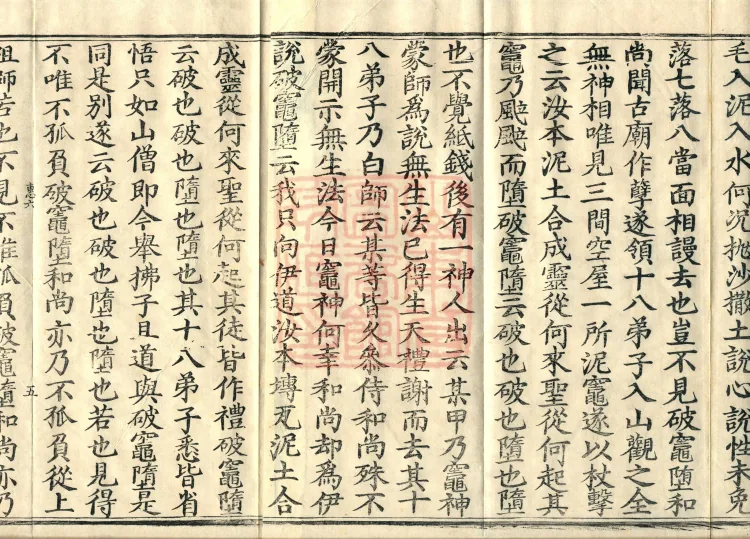 毛入泥入水何況抛沙撒土說心說性未免
落七落八當面相謾去也豈不見破竈墮和
尚聞古廟作孽遂領十八弟子入山觀之全
無神相唯見三間空屋一所泥竈遂以杖擊
之云汝本泥土合成靈從何來聖從何起其
竈乃颰颰而墮破竈墮云破也破也墮也墮
也不覺紙錢後有一神人出云某甲乃竈神
蒙師為說無生法已得生天禮謝而去其十
八弟子乃白師云某等皆久叅侍和尚殊不
蒙開示無生法今日竈神何幸和尚却為伊
說破竈墮云我只向伊道汝本塼瓦泥土合
成靈從何來聖從何起其徒皆作禮破竈墮
云破也破也墮也墮也其十八弟子悉皆省
悟只如山僧即今舉拂子且道與破竈墮是
同是別遂云破也破也墮也墮也若也見得
不唯不孤負破竈墮和尚亦乃不孤負從上
五
祖師若也不見不唯孤負破竈墮和尚亦乃